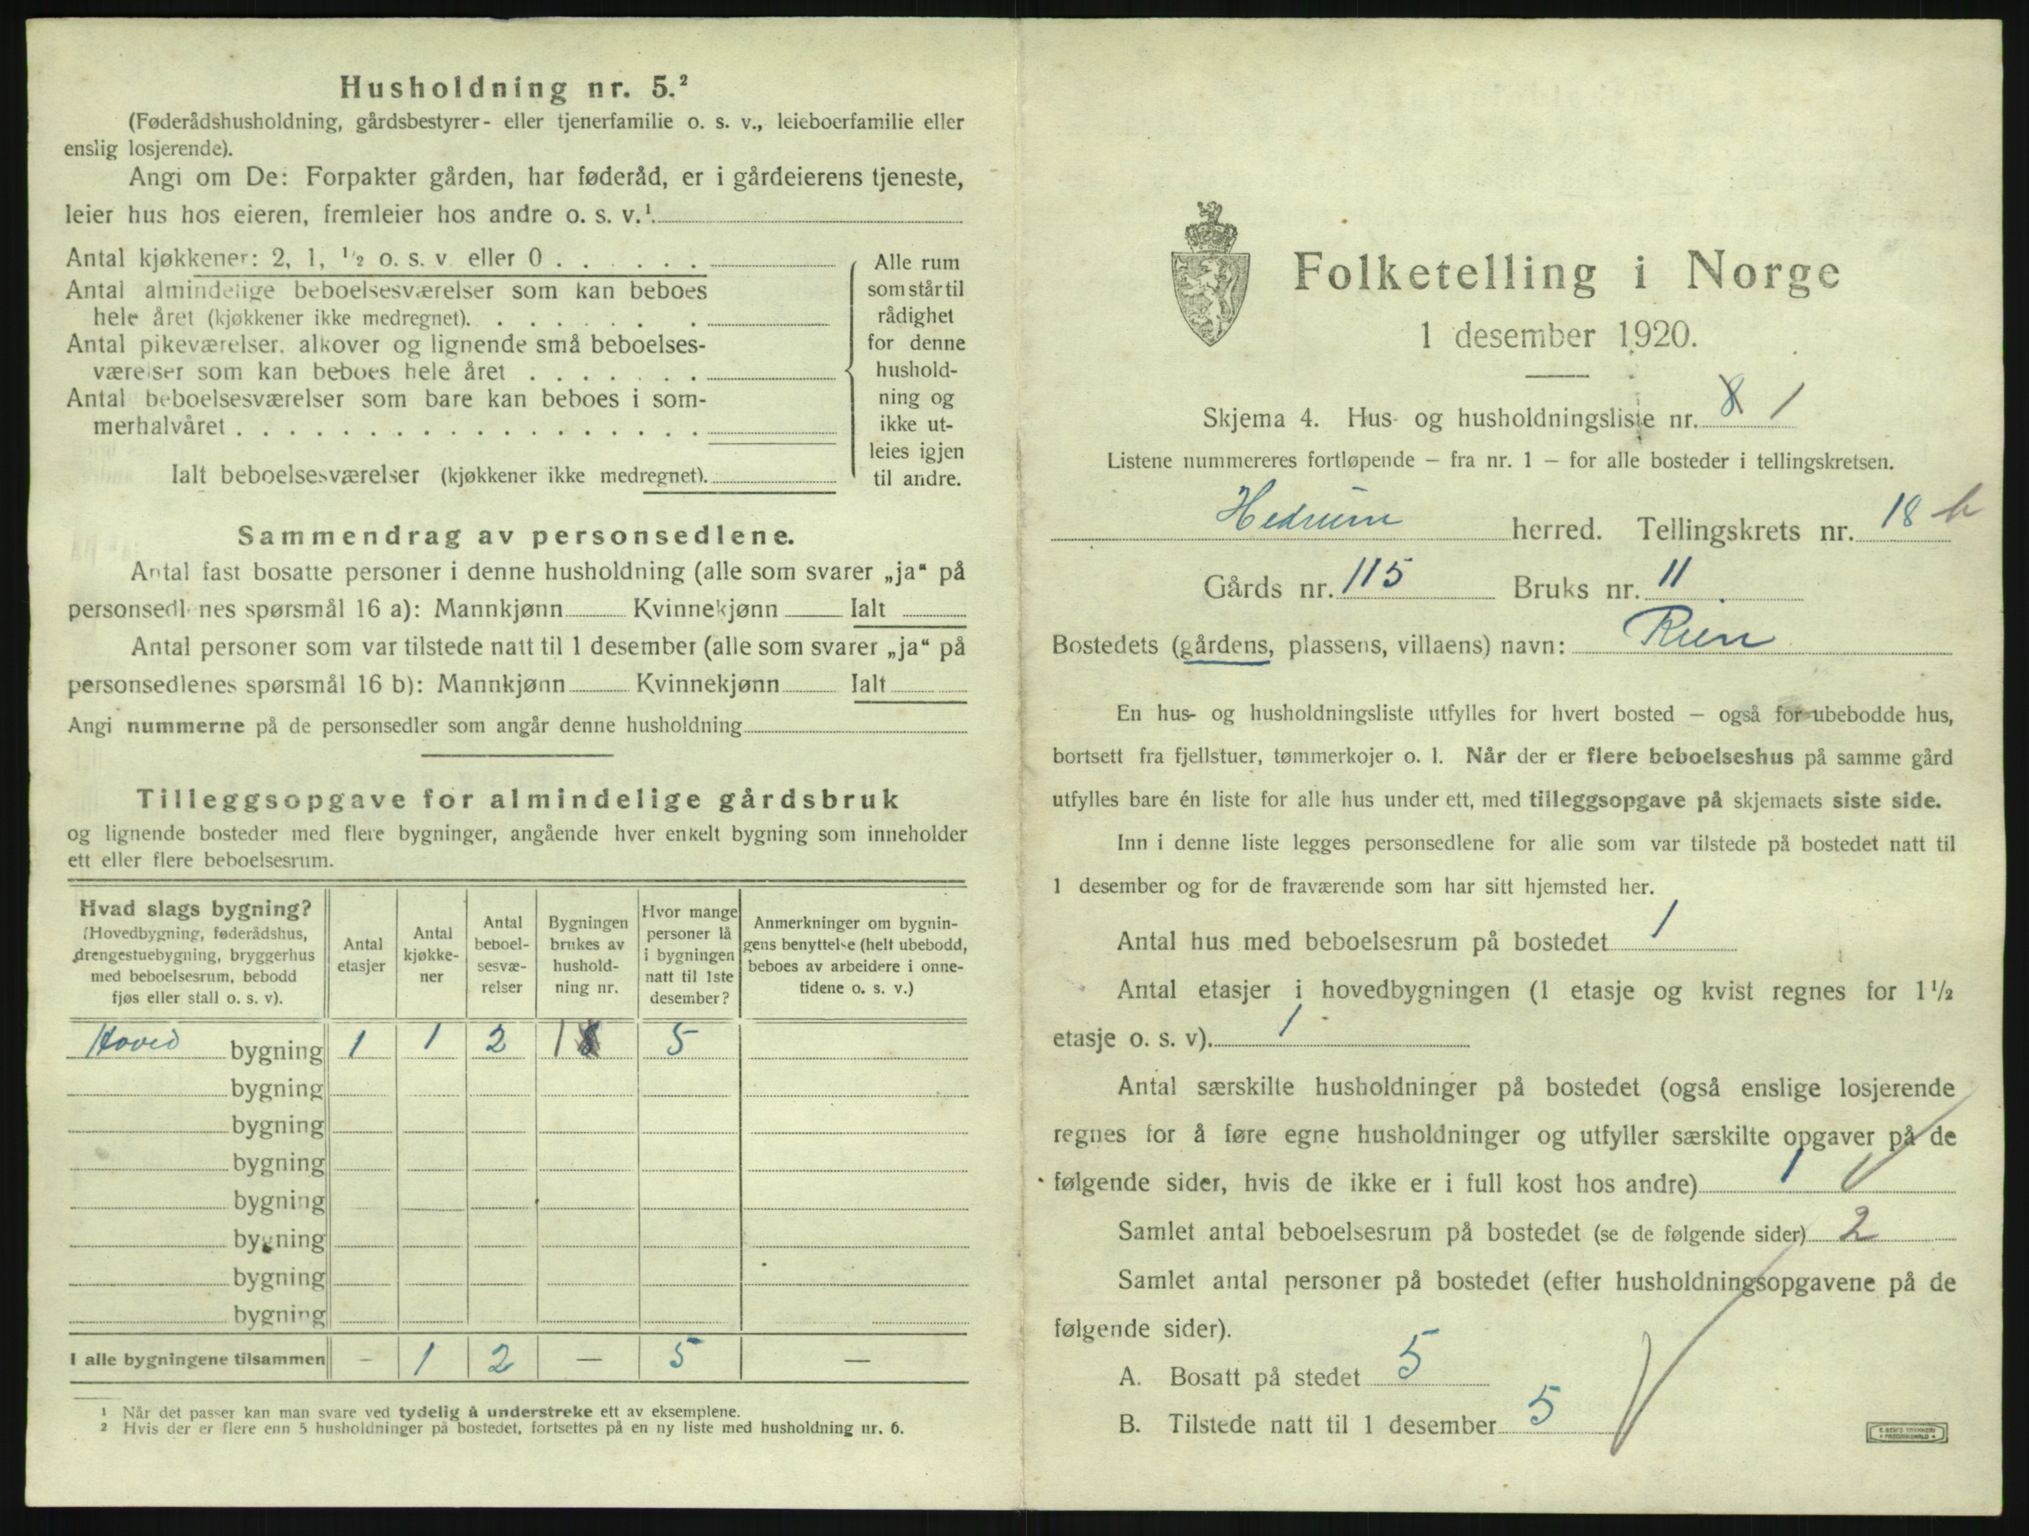 Husholdning nr. 5.²
(Føderådshusholdning, gårdsbestyrer- eller tjenerfamilie o. s. v., leieboerfamilie eller
enslig losjerende).
Angi om De: Forpakter gården, har føderåd, er i gårdeierens tjeneste,
leier hus hos eieren, fremleier hos andre o. s. v.¹
Antal kjøkkener: 2, 1, ½ o. s. v. eller 0
Antal almindelige beboelsesværelser som kan beboes
hele året (kjøkkener ikke medregnet)
Antal pikeværelser, alkover og lignende små beboelses-
værelser som kan beboes hele året
Antal beboelsesværelser som bare kan beboes i som-
merhalvåret
Ialt beboelsesværelser (kjøkkener ikke medregnet)
Alle rum
som står til
rådighet
for denne
hushold-
ning og
ikke ut-
leies igjen
til andre.
Sammendrag av personsedlene.
Antal fast bosatte personer i denne husholdning (alle som svarer „ja“ på
personsedlenes spørsmål 16 a): Mannkjønn Kvinnekjønn Ialt
Antal personer som var tilstede natt til 1 desember (alle som svarer „ja“ på
personsedlenes spørsmål 16 b): Mannkjønn Kvinnekjønn Ialt
Angi nummerne på de personsedler som angår denne husholdning
Tilleggsopgave for almindelige gårdsbruk
og lignende bosteder med flere bygninger, angående hver enkelt bygning som inneholder
ett eller flere beboelsesrum.
Hvad slags bygning?
(Hovedbygning, føderådshus,
drengestuebygning, bryggerhus
med beboelsesrum, bebodd
fjøs eller stall o. s. v).
Antal
etasjer
Antal
kjøkke-
ner
Antal
beboel-
sesvæ-
relser
Bygningen
brukes av
hushold-
ning nr.
Hvor mange
personer lå
i bygningen
natt til 1ste
desember?
Anmerkninger om bygnin-
gens benyttelse (helt ubebodd,
beboes av arbeidere i onne-
tidene o. s. v.)
Hoved bygning 1 1 2 1 8 5
bygning
bygning
bygning
bygning
bygning
bygning
bygning
I alle bygningene tilsammen – 1 2 — 5 —
¹ Når det passer kan man svare ved tydelig å understreke ett av eksemplene.
² Hvis der er flere enn 5 husholdninger på bostedet, fortsettes på en ny liste med husholdning nr. 6.
Folketelling i Norge
1 desember 1920.
Skjema 4. Hus- og husholdningsliste nr. 8 1
Listene nummereres fortløpende – fra nr. 1 – for alle bosteder i tellingskretsen.
Hedrum herred. Tellingskrets nr. 18 b
Gårds nr. 115 Bruks nr. 11
Bostedets (gårdens, plassens, villaens) navn: Ruen
En hus- og husholdningsliste utfylles for hvert bosted – også for ubebodde hus,
bortsett fra fjellstuer, tømmerkojer o. l. Når der er flere beboelseshus på samme gård
utfylles bare én liste for alle hus under ett, med tilleggsopgave på skjemaets siste side.
Inn i denne liste legges personsedlene for alle som var tilstede på bostedet natt til
1 desember og for de fraværende som har sitt hjemsted her.
Antal hus med beboelsesrum på bostedet 1
Antal etasjer i hovedbygningen (1 etasje og kvist regnes for 1½
etasje o. s. v). 1
Antal særskilte husholdninger på bostedet (også enslige losjerende
regnes for å føre egne husholdninger og utfyller særskilte opgaver på de
følgende sider, hvis de ikke er i full kost hos andre) 1
Samlet antal beboelsesrum på bostedet (se de følgende sider) 2
Samlet antal personer på bostedet (efter husholdningsopgavene på de
følgende sider).
A. Bosatt på stedet 5
B. Tilstede natt til 1 desember 5